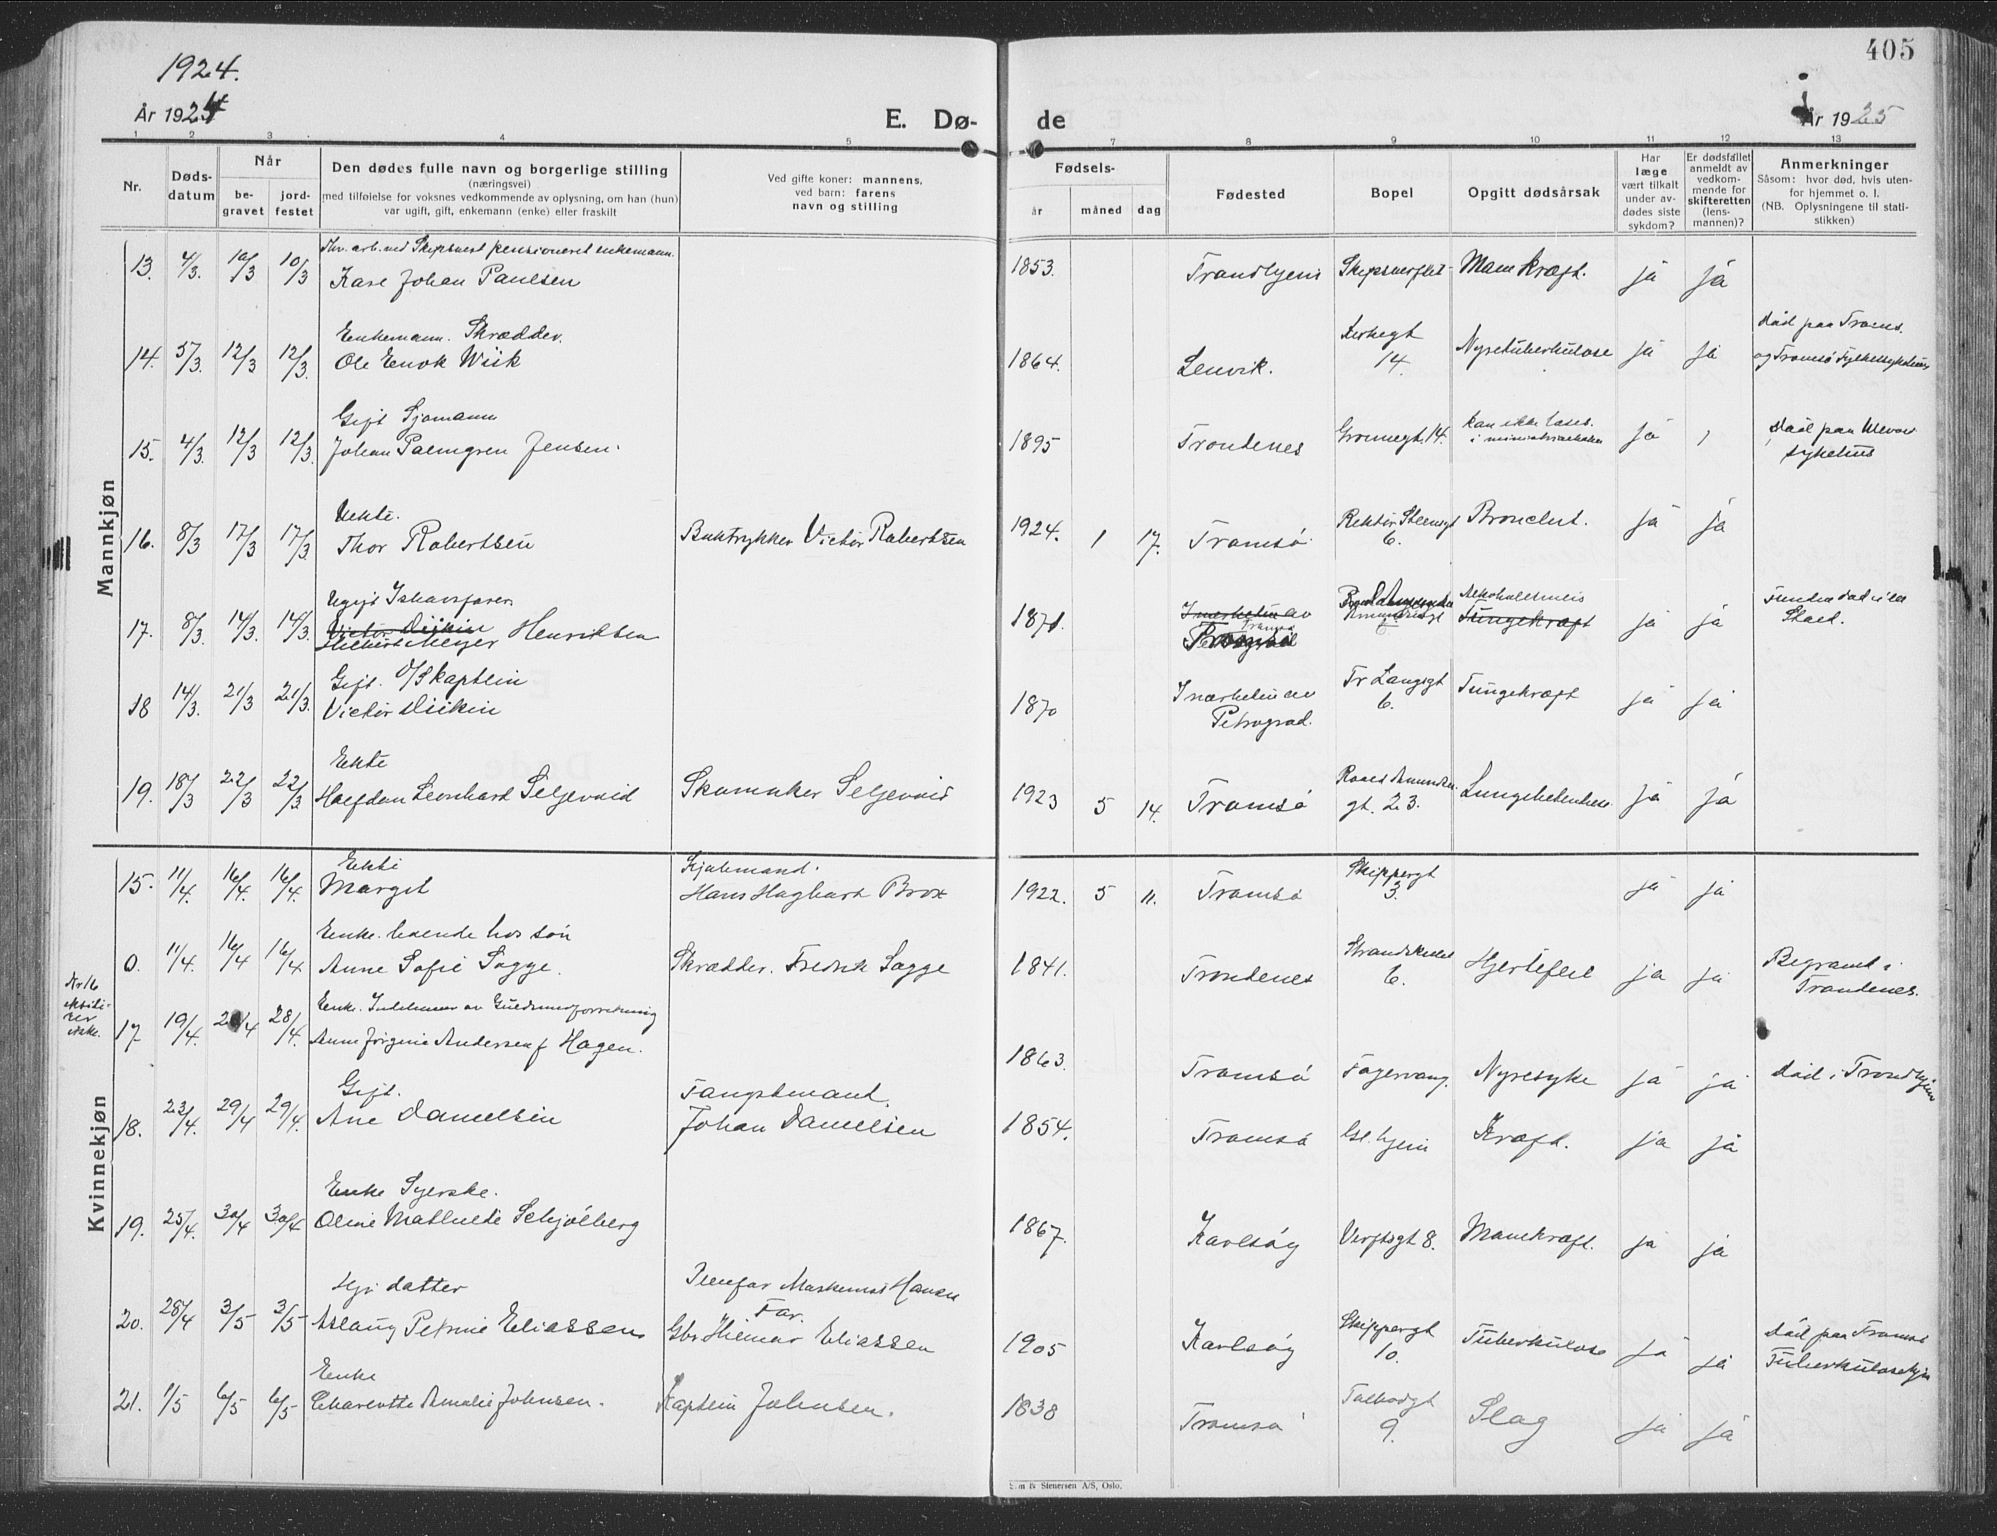 405
1924.
År 1924
E. Dø-
de
År 1925
1 2 3 4 5 7 8 9 10 11 12 13
Nr.
Døds-
datum
Når
be-
gravet
jord-
festet
Den dødes fulle navn og borgerlige stilling
(næringsvei)
med tilføielse for voksnes vedkommende av oplysning, om han (hun)
var ugift, gift, enkemann (enke) eller fraskilt
Ved gifte koner: mannens,
ved barn: farens
navn og stilling
Fødsels-
år
måned
dag
Fødested
Bopel
Opgitt dødsårsak
Har
læge
vært tilkalt
under av-
dødes siste
sykdom?
Er dødsfallet
anmeldt av
vedkom-
mende for
skifteretten
(lens-
mannen)?
Anmerkninger
Såsom: hvor død, hvis uten-
for hjemmet o. l.
(NB. Oplysningene til stati-
stikken)
Mannkjøn
arb. ved Skipsverft pensioneret enkemann.
13. 4/3. 10/3 10/3 Johan Paulsen 1853. Trondhjem Skipsverftet Mavekræft. ja ja
Enkemann. Skrædder. Død paa Troms
14. 5/3. 12/3 12/3. Ole Enok Wiik 1864. Lenvik. Kirkegt 14. Nyretuberkulose ja ja og Tromsø Fylkessykehus
Gift Sjømann
15. 4/3. 12/3 12/3. Johan Palmgren Jensen. 1895 Trondenes Grønnegt. 14. kan ikke læses ja Død paa
sykehus
Uekte.
16. 8/3 17/3 17/3 Thor Robertsen Boktrykker Victor Robertsen 1924. 1 17. Tromsø. 6. Bronchit. ja ja
Ugift Ishavsfarer
17. 8/3. 14/3. 14/3. Victor Meyer Henriksen 1871. I nærheten av Tromsø Alkoholisme Lungekræft ja ja Funden død
Gift. kaptein
18 14/3. 21/3 21/3. Victor 1870 I nærheten av Petrograd. Fr Langsgt 6. Tungekræft ja ja
Ekte
19. 18/3 22/3 22/3 Halfdan Leonhard Seljevold Skomaker Seljevold 1923 5 14. Tromsø Roald Amundsens gt. 23. Lungebetendelse ja ja
Kvinnekjøn
Ekte
15. 11/4. 16/4. 16/4. Margit Hans Hagbart Brox 1922. 5 11. Tromsø Skippergt 3. ja ja
Enke. boende hos søn
0. 11/4. 16/4 16/4 Anne Sofie Sagge. Skrædder. Fredrik Sagge 1841. Trondenes 6. Hjertefeil ja ja Begravd i
Trondenes.
Nr. 16
eksiste-
rer
ikke.
Enke. Indehaver av Guldsmedforretning
17 19/4. 28/4 28/4. Anne Jørgine Andersen f Hagen. 1863. Tromsø Fagervang. Nyresyke ja ja død i Trondhjem
Gift. Fangstmand.
18. 23/4. 29/4 29/4. Ane Danielsen Johan Danielsen 1854. Tromsø Kræft. ja ja
Enke Syerske.
19. 25/4. 30/4 30/4 Oline Mathilde Schjølberg 1867. Karlsøy Verftsgt 8. Mavekræft. ja ja
datter Hansen
Far.
20. 28/4 3/5 3/5 Aslaug Petrine Eliassen Hilmar Eliassen 1905 Karlsøy Skippergt 10. Tuberkulose ja ja død paa Tromsø
Tuberkulosehjem
Enke
21. 1/5 6/5 6/5 Charlotte Amalie Johnsen. Kaptein Johnsen. 1838 Tromsø Tolbodgt 9. Slag ja ja
Sem & Stenersen A/S, Oslo.